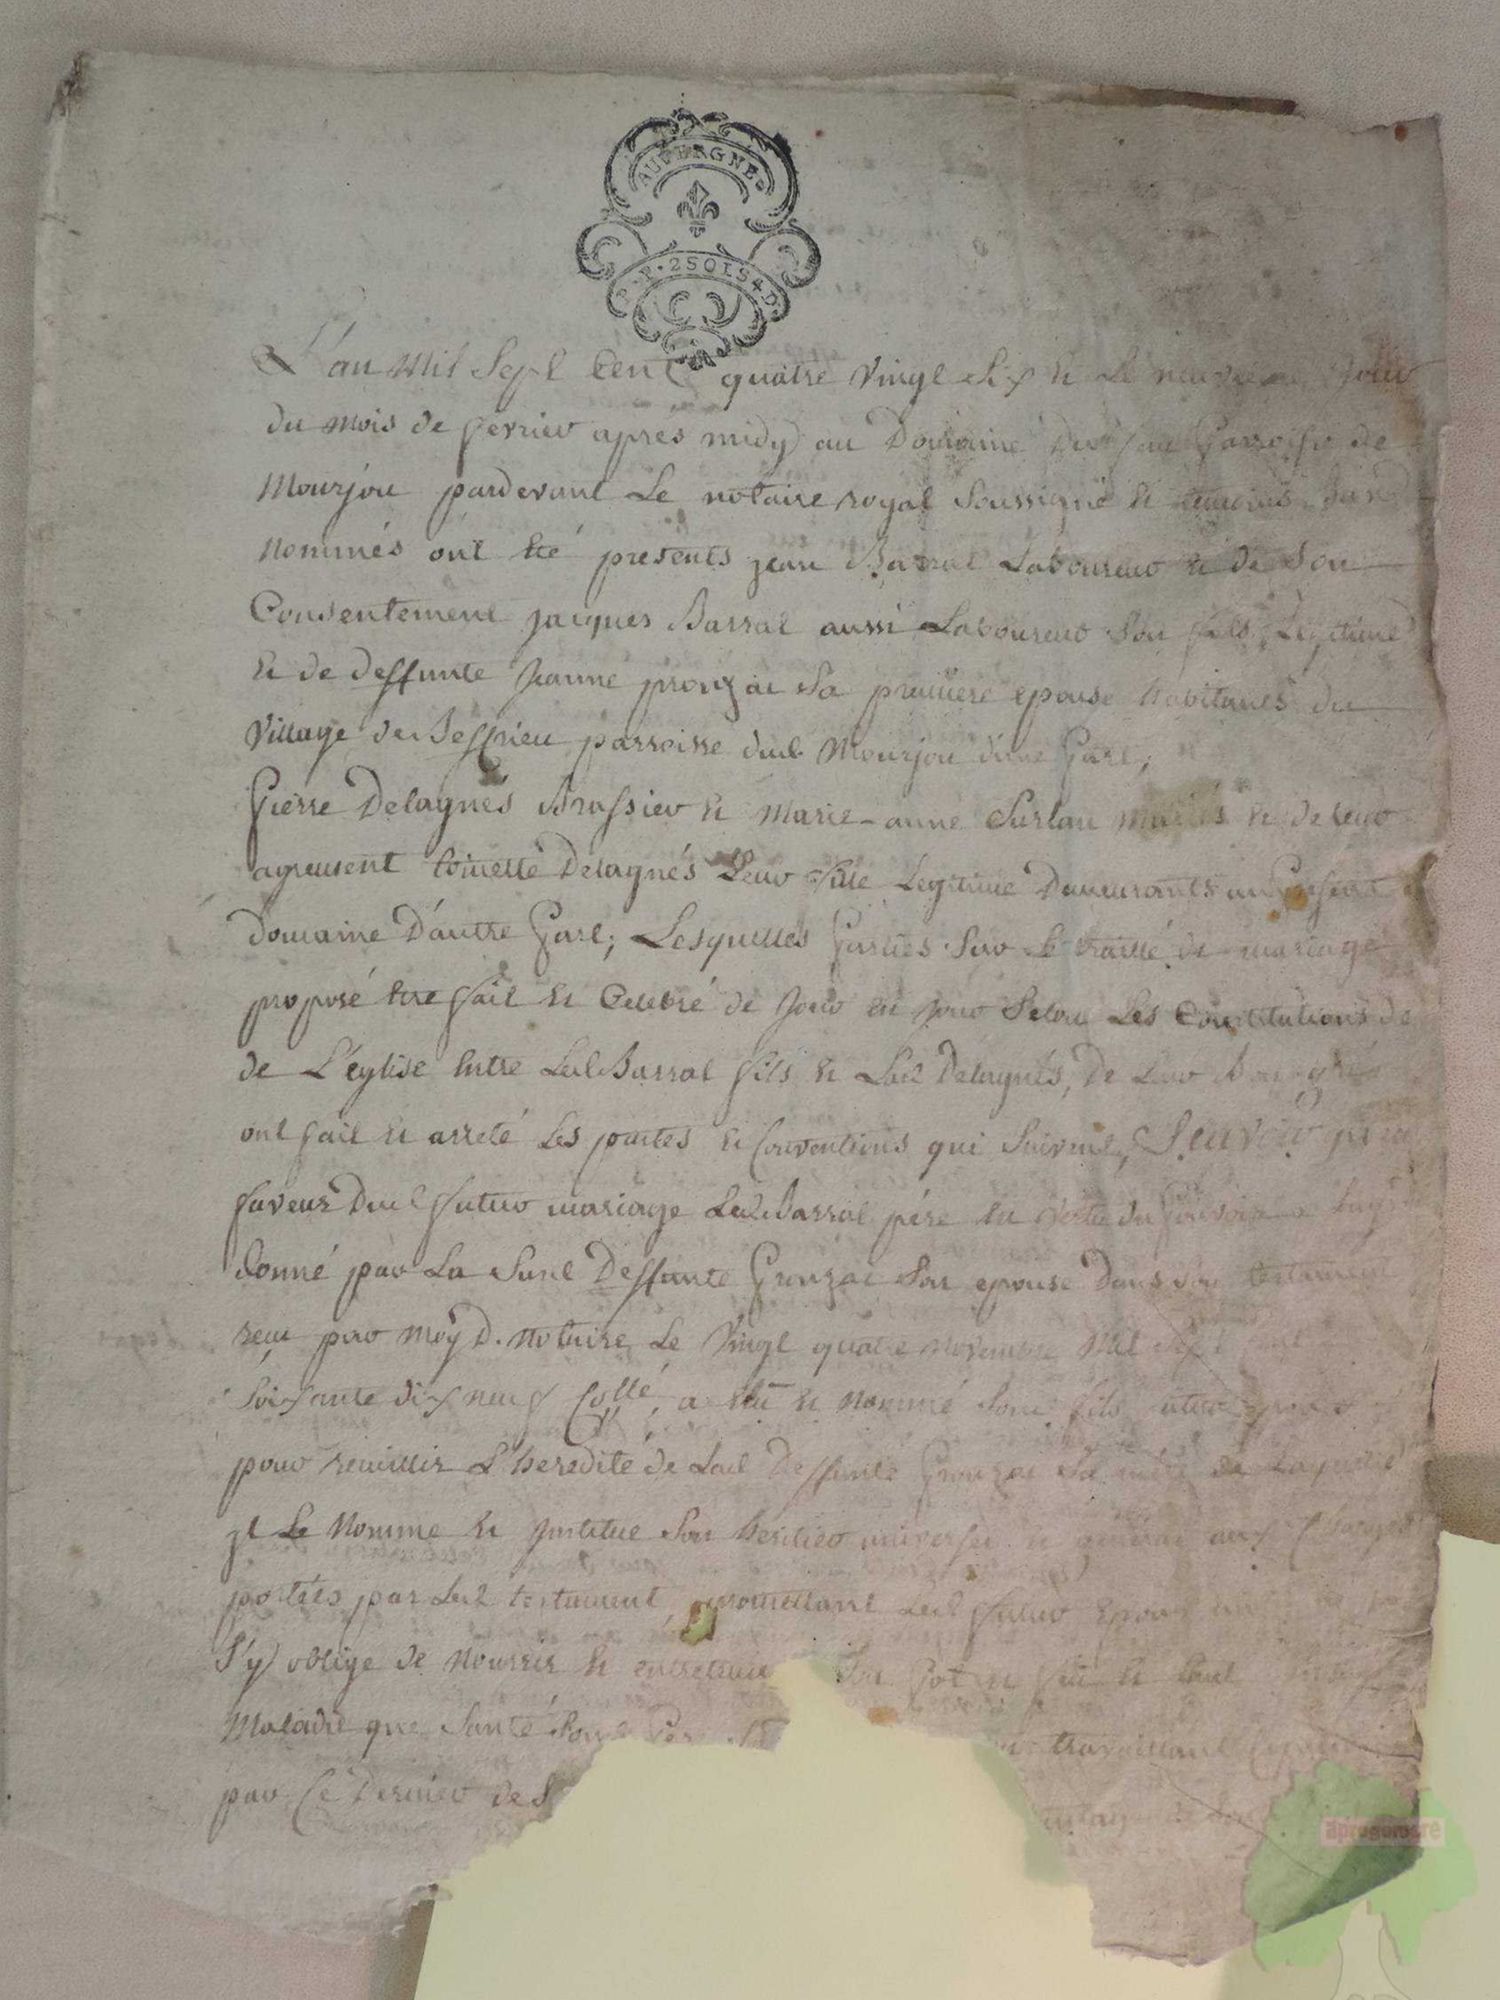 AUVERGNE.
P.P. 2 SOLS 4 D.
L'an Mil Sept Cent quatre Vingt Six & Le neuvieme Jour
du Mois de fevrier apres midy au Domaine Parroisse de
Mourjou pardevant Le notaire royal Soussigné & temoins bas
Nommés ont été presents jean Barral Laboureur & de Son
Consentement jacques Barral aussi Laboureur Son fils Légitime
& de deffunte jeanne prouzac Sa premiere epouse habitants du
Village de parroisse dud Mourjou d'une Part;
Pierre Delagnés Brassier & Marie-anne Surlau mariés & de leur
agreement toinette Delagnés Leur fille Legitime Demeurants au present
Domaine D'autre Part; Lesquelles Parties Sur Le traitté de mariage
proposé etre fait & Celebré de Jour en jour Selon Les Constitutions de
de L'église Entre Led Barral fils & Lad Delagnés, De Leur Bon gré
ont fait & arreté Les pactes & Conventions qui Suivent, Scavoir
faveur Dud futur mariage Led Barral pére En Vertu du Pouvoir a Luy
donné par La Susd Deffunte Prouzac Son epouse Dans Son testament
reçu par Moy D. Notaire Le Vingt quatre Novembre Mil Sept Cent
Soixante dix neuf Collé, a Elu & Nommé Son fils futur
pour recuillir L'heredité de Lad Deffunte Prouzac Sa mére de Laquelle
jl Le Nomme & jnstitue Son heritier universel & général aux Charges
portées par Led testament, promettant Led futur Epoux
S'y oblige de Nourrir & entretenir Son Pot & feu &
Maladie que Santé travaillant
par Ce Dernier de S